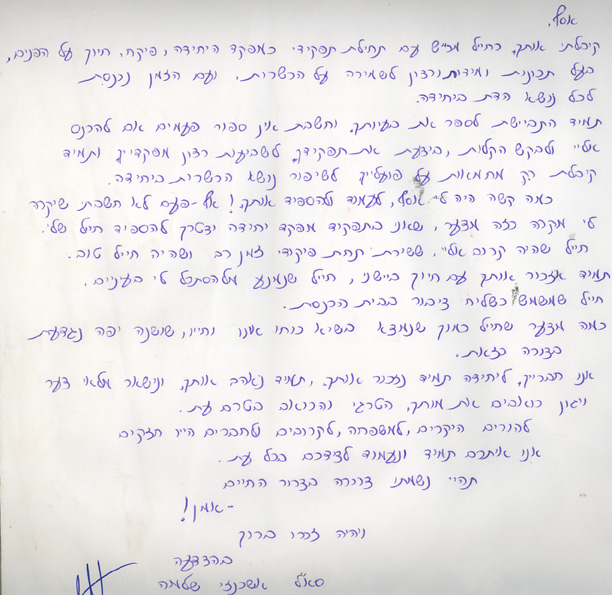 אסף,
קיבלתי אותך, כחייל מכ״ש עם תחילת תפקידי כמפקד היחידה, פיקח, חיוך על הפנים,
בעל תכונות ומידות ורצון לשמירה על הכשרות, ועם הזמן נכנסת
לכל נושא הדת ביחידה.
תמיד התביישת לספר את בעיותיך, וחשבת אין ספור פעמים אם להכנס
אליי ולבקש הקלות, ביצעת את תפקידך לשביעות רצון מפקדייך ותמיד
קיבלת רק מחמאות על פועלייך לשיפור נושא הכשרות ביחידה.
כמה קשה היה לי אסף, לעמוד ולהספיד אותך! אף-פעם לא חשבתי שיקרה
לי מקרה כזה מצער, שאני בתפקיד מפקד יחידה יצטרך להספיד חייל שלי.
חייל שהיה קרוב אליי, ששירת תחת פיקודי זמן רב ושהיה חייל טוב.
תמיד אזכור אותך עם חיוך ביישני, חייל שנמנע מלהסתכל לי בעינים.
חייל שמשמש כשליח ציבור בבית הכנסת.
כמה מצער שחייל כמוך שנמצא בשיא כוחו אונו וחייו, ששושנה יפה נגדעת
בצורה כזאת.
אנו חבריך, ליחידה תמיד נזכור אותך, תמיד נאהב אותך, ונישאר מלאי צער
ויגון כואבים את מותך, הטרגי והכואב בטרם עת.
להורים היקרים, למשפחה, לקרובים ולחברים היו חזקים
אנו איתכם תמיד ונעמוד לצידכם בכל עת.
תהיי נשמתו צרורה בצרור החיים
-אמן!
ויהיה זכרו ברוך
בהצדעה
סא״ל אשכנזי שלמה